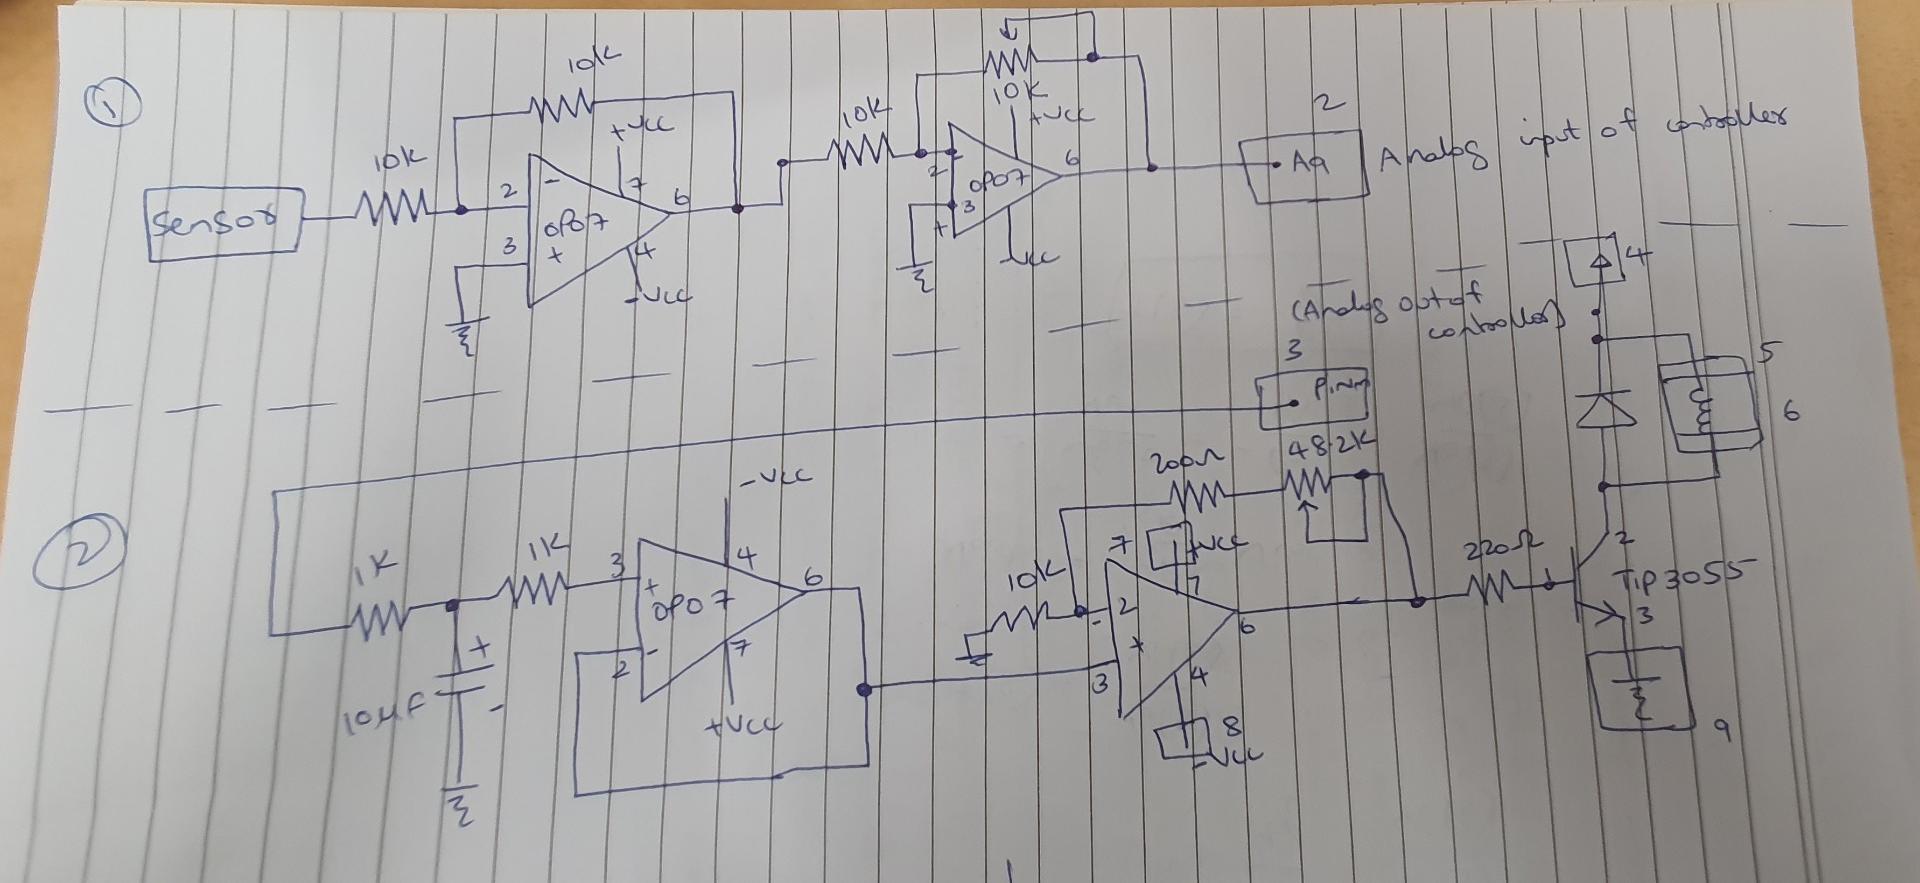 1
10K
10K
+VCC
2
-
7
6
Sensor
OP07
3
+
4
-VCC
10K
10K
+VCC
2
-
6
OP07
3
+
-VCC
2
A9
Analog input of controller
(Analog out of
controller)
3
4
5
6
2
-VCC
1K
1K
3
+
4
6
OP07
2
-
7
+VCC
+
10µF
-
200Ω
48.2K
10K
7
+VCC
7
2
-
+
6
3
4
8
-VCC
220Ω
2
TIP3055
3
9